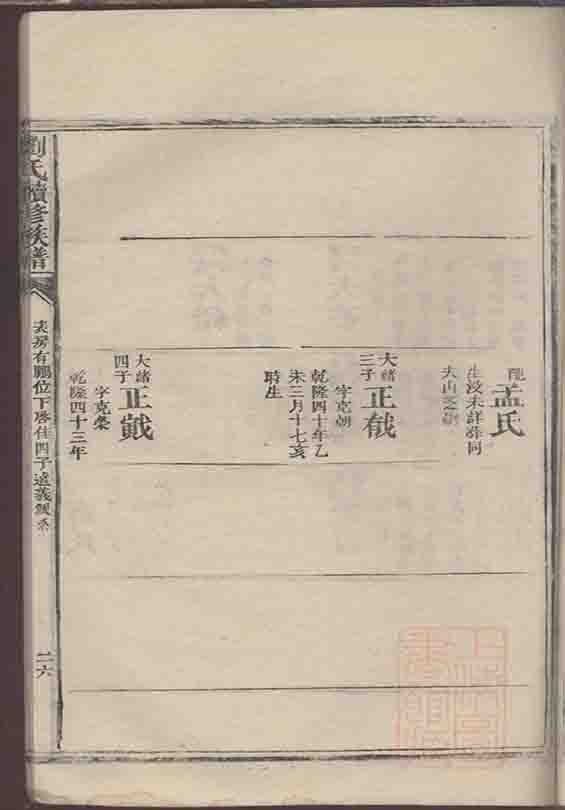 配
孟氏
生没未詳葬同
夫山之
大緒
三子
正㦸
字克朝
乾隆四十年乙
未三月十七亥
時生
大緒
四子
正
字克榮
乾隆四十三年
劉氏續修族譜
表房有鵬位下啓佳四子遠義
二六